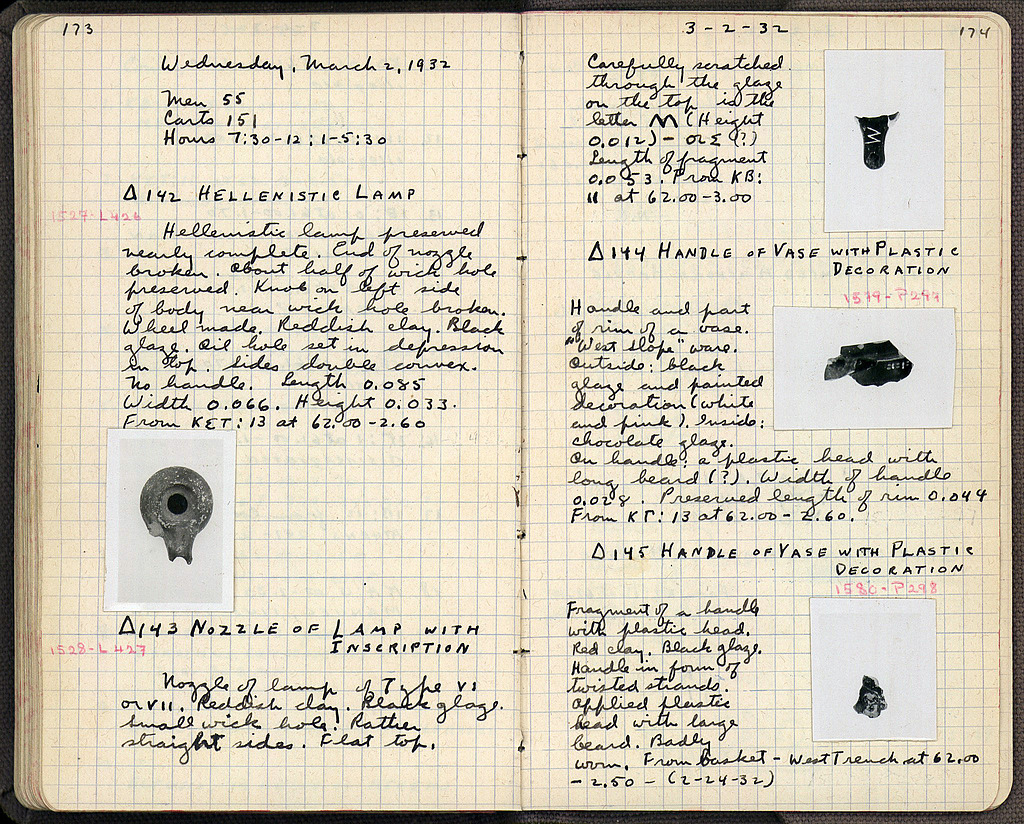 173
Wednesday, March 2, 1932
Men 55
Carts 151
Hours 7:30-12; 1-5:30
Δ142 HELLENISTIC LAMP
1527-L426
Hellenistic lamp preserved
nearly complete. End of nozzle
broken. About half of wick hole
preserved. Knob on left side
of body near wick hole broken.
Wheel made. Reddish clay. Black
glaze. Oil hole set in depression
in top. Sides double convex.
No handle. Length 0.085
Width 0.066. Height 0.033.
From ΚΣΤ:13 at 62.00-2.60
Δ143 NOZZLE OF LAMP WITH
INSCRIPTION
1528-L427
Nozzle of lamp of Type VI
or VII. Reddish clay. Black glaze.
Small wick hole. Rather
straight sides. Flat top.
3-2-32
174
Carefully scratched
through the glaze
on the top is the
letter M (Height
0.012) - or Σ (?)
Length of fragment
0.053. From KB:
11 at 62.00-3.00
Δ144 HANDLE OF VASE WITH PLASTIC
DECORATION
1579-P297
Handle and part
of rim of a vase.
"West slope" ware.
Outside: black
glaze and painted
decoration (white
and pink). Inside:
chocolate glaze.
On handle: a plastic head with
long beard (?). Width of handle
0.028. Preserved length of rim 0.044
From ΚΓ:13 at 62.00-2.60.
Δ145 HANDLE OF VASE WITH PLASTIC
DECORATION
1580-P298
Fragment of a handle
with plastic head.
Red clay. Black glaze.
Handle in form of
twisted strands.
Applied plastic
head with large
beard. Badly
worn. From basket - West Trench at 62.00
-2.50 - (2-24-32)